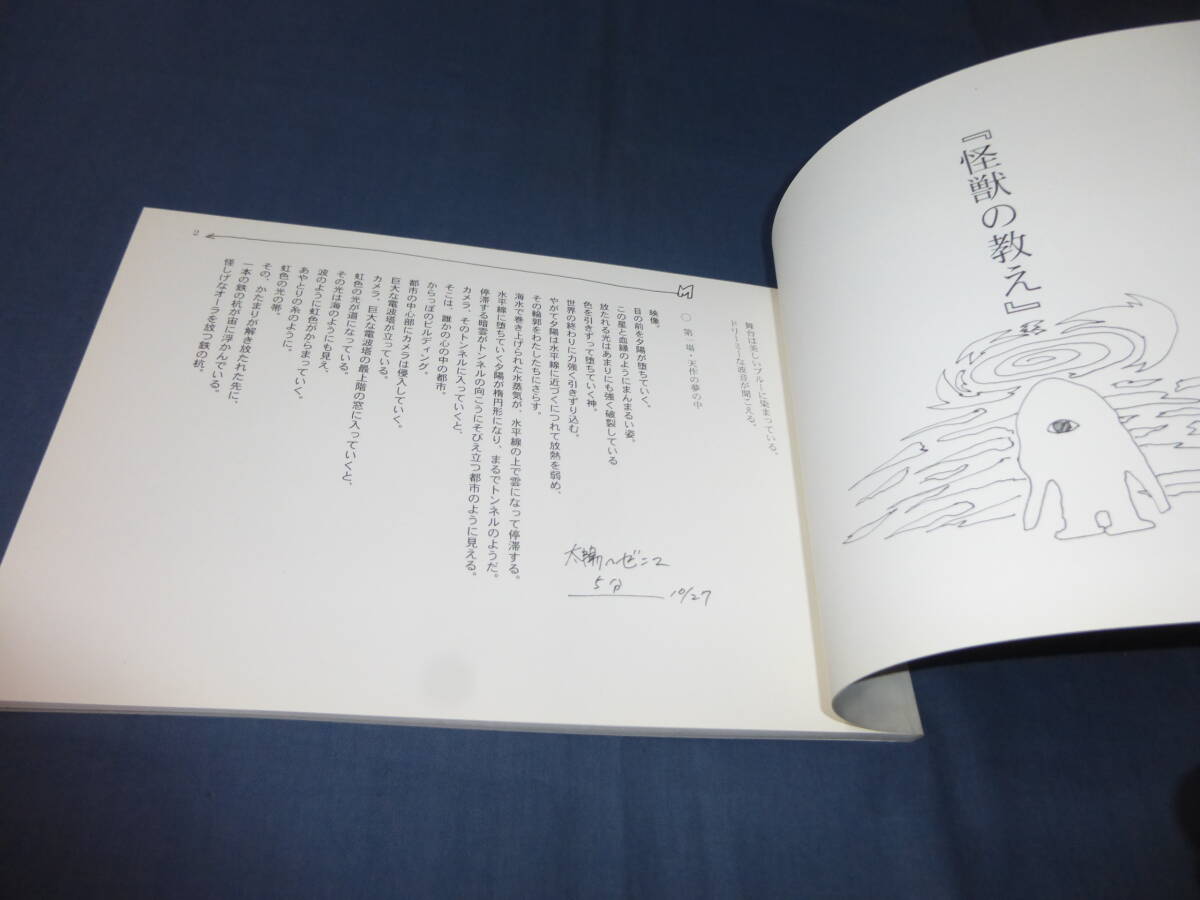 『怪獣の教え』
舞台は美しいブルーに染まっている、
ドリーミーな波音が聞こえる、
〇 第一場・天作の夢の中
映像。
目の前を夕陽が堕ちていく。
この星と血縁のようにまんまるい姿。
放たれる光はあまりにも強く破裂している
色を引きずって堕ちていく神。
世界の終わりに力強く引きずり込む。
やがて夕陽は水平線に近づくにつれて放熱を弱め、
その輪郭をわたしたちにさらす。
海水で巻き上げられた水蒸気が、水平線の上で雲になって停滞する。
水平線に堕ちていく夕陽が楕円形になり、まるでトンネルのようだ。
停滞する暗雲がトンネルの向こうにそびえ立つ都市のように見える。
カメラ、そのトンネルに入っていくと、
そこは、誰かの心の中の都市。
からっぽのビルディング。
都市の中心部にカメラは侵入していく。
巨大な電波塔が立っている。
カメラ、巨大な電波塔の最上階の窓に入っていくと、
虹色の光が道になっている。
その光は海のようにも見え、
波のように虹色がからまっていく。
あやとりの糸のように。
虹色の光の帯。
その、かたまりが解き放たれた先に、
一本の鉄の杭が宙に浮かんでいる。
怪しげなオーラを放つ鉄の杭。
5分
10/27
2